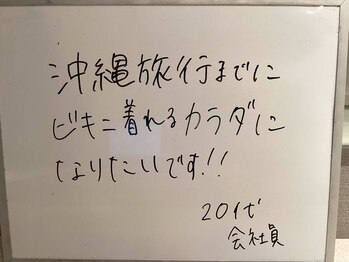 沖縄旅行までに
ビキニ着れるカラダに
なりたいです!!
20代
会社員